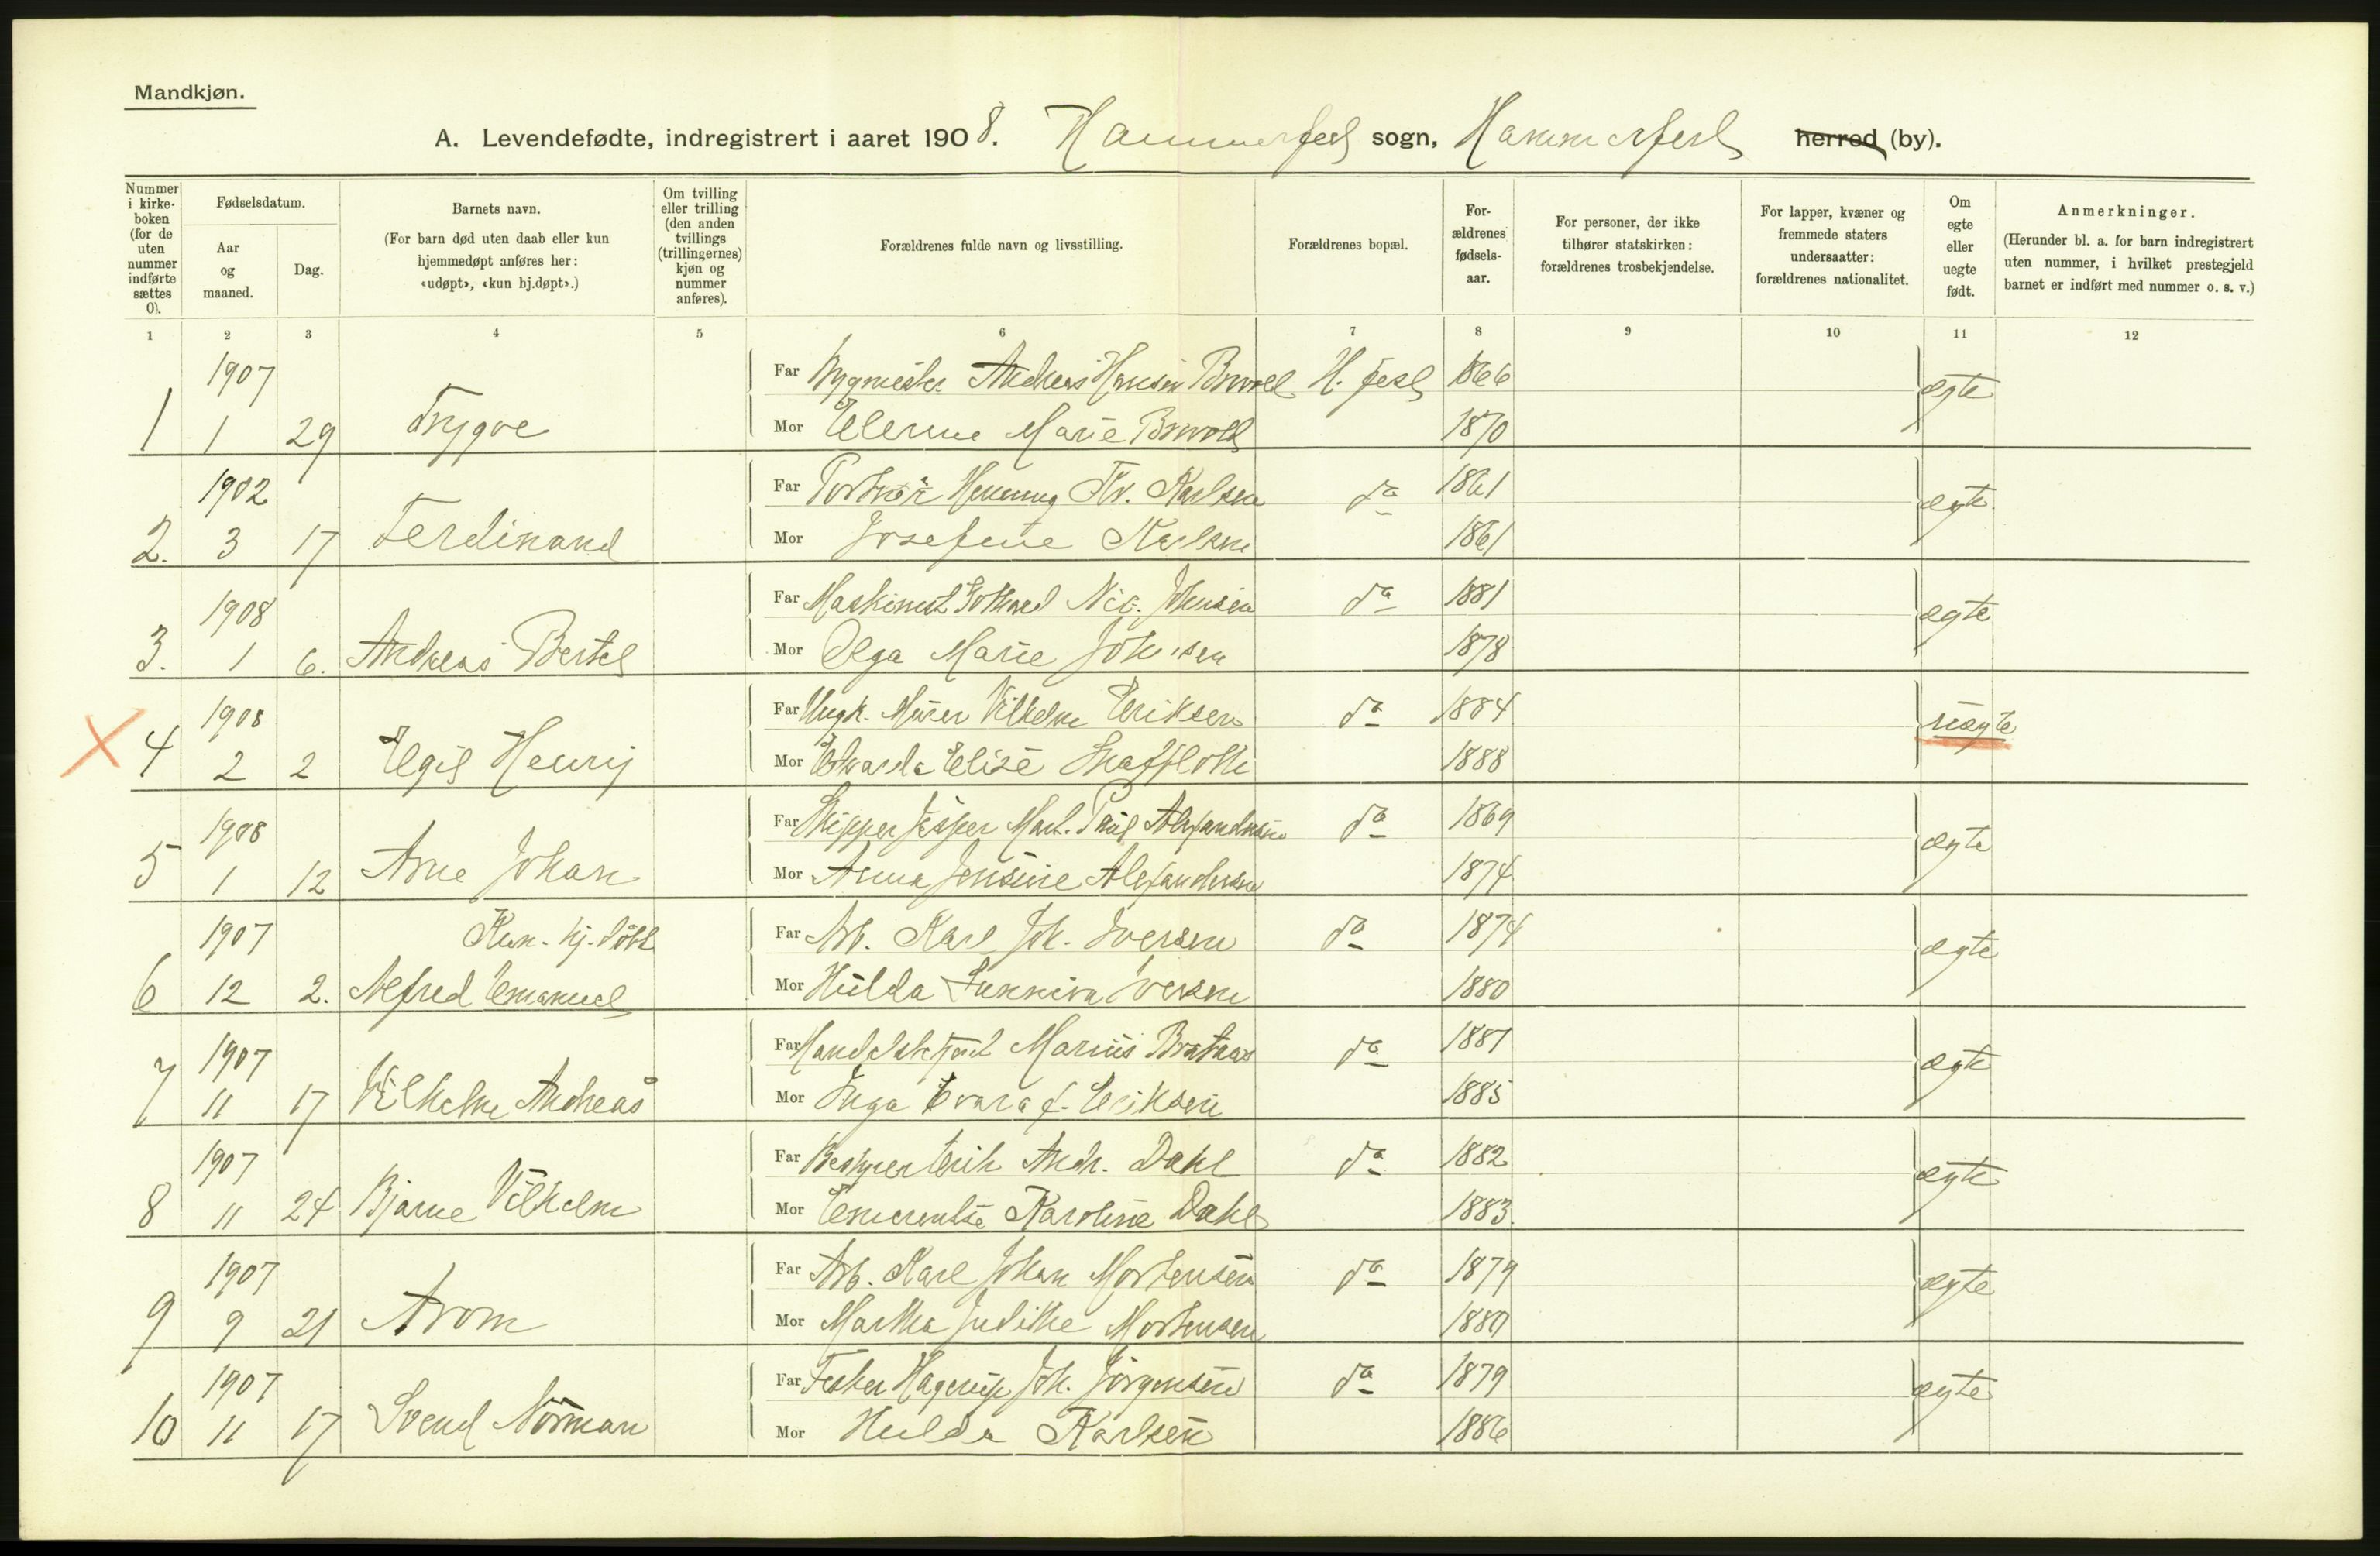 Mandkjøn.
A. Levendefødte, indregistrert i aaret 1908. Hammerfest sogn, Hammerfest herred (by).
Nummer i kirkeboken (for de uten nummer indførte sættes 0).
Fødselsdatum.
Aar og maaned.
Dag.
Barnets navn.
(For barn død uten daab eller kun hjemmedøpt anføres her: «udøpt», «kun hj.døpt».)
Om tvilling eller trilling (den anden tvillings (trillingernes) kjøn og nummer anføres).
Forældrenes fulde navn og livsstilling.
Forældrenes bopæl.
Forældrenes fødselsaar.
For personer, der ikke tilhører statskirken: forældrenes trosbekjendelse.
For lapper, kvæner og fremmede staters undersaatter: forældrenes nationalitet.
Om egte eller uegte født.
Anmerkninger.
(Herunder bl. a. for barn indregistrert uten nummer, i hvilket prestegjeld barnet er indført med nummer o. s. v.)
1 2 3 4 5 6 7 8 9 10 11 12
1907 Far Bygmester Andreas Hansen H. fest 1866 ægte
1 1 29 Trygve Mor Marie 1870
1902 Far Henning Karlsen do 1861 ægte
2. 3 17 Ferdinand Mor Josefine Karlsen 1861
1908 Far Maskinist Nic. Johnsen do 1881 ægte
3. 1 6. Andreas Bertel Mor Olga Marie Johnsen 1878
1908 Far Ungk. Murer Vilhelm Eriksen do 1884 uægte
4 2 2 Egil Henry Mor Edvarda Elise 1888
1908 Far Skipper Jesper Mart. Paul Alexandersen do 1869 ægte
5 1 12 Arne Johan Mor Anna Jensine Alexandersen 1874
1907 Kun hj. døbt Far Arb. Karl Joh. Iversen do 1874 ægte
6 12 2. Alfred Emanuel Mor Hulda Sunniva Iversen 1880
1907 Far Marius do 1881 ægte
7 11 17 Vilhelm Andreas Mor Inga f. Eriksen 1885
1907 Far Erik Andr. Dahl do 1882 ægte
8 11 24 Bjarne Vilhelm Mor Emerentse Karoline Dahl 1883.
1907 Far Arb. Karl Johan Mortensen do 1879 ægte
9 9 21 Arom Mor Martha Judithe Mortensen 1880
1907 Far Fisker Hagerup Joh. Jörgensen do 1879 ægte
10 11 17 Svend Norman Mor Hulda Karlsen 1886